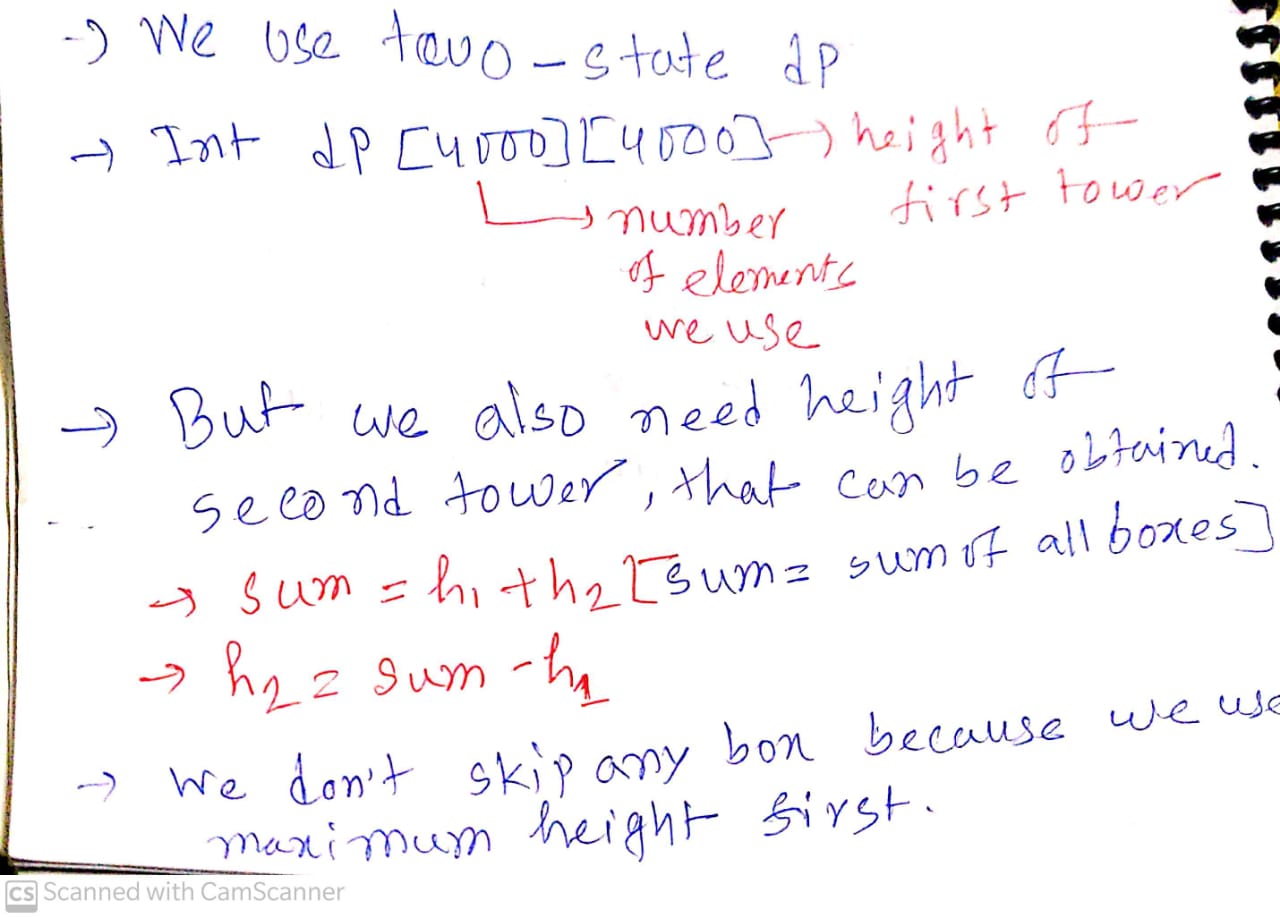 → We use two-state dp
→ Int dp [4000][4000] → height of
first tower
number
of elements
we use
→ But we also need height of
second tower, that can be obtained.
→ sum = h1 + h2 [sum = sum of all boxes]
→ h2 = sum - h1
→ we don't skip any box because we use
maximum height first.
CS Scanned with CamScanner